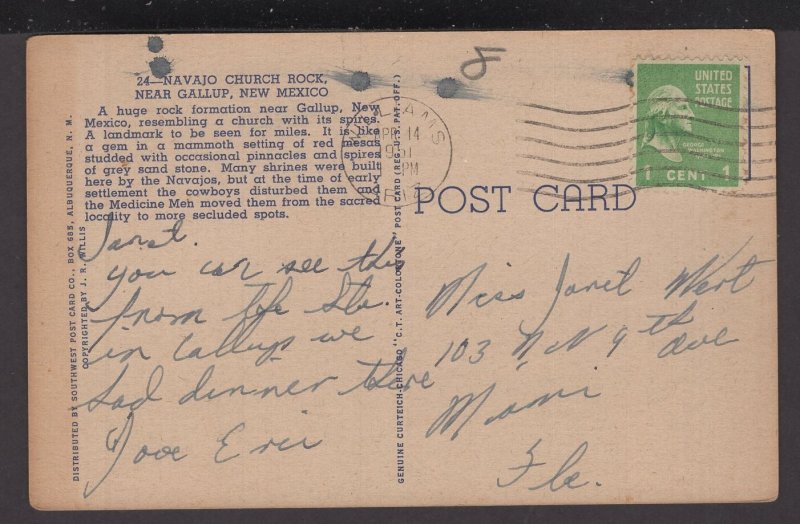 24—NAVAJO CHURCH ROCK,
NEAR GALLUP, NEW MEXICO
A huge rock formation near Gallup, New
Mexico, resembling a church with its spires.
A landmark to be seen for miles. It is like
a gem in a mammoth setting of red mesas
studded with occasional pinnacles and spires
of grey sand stone. Many shrines were built
here by the Navajos, but at the time of early
settlement the cowboys disturbed them and
the Medicine Men moved them from the sacred
locality to more secluded spots.
DISTRIBUTED BY SOUTHWEST POST CARD CO., BOX 685, ALBUQUERQUE, N. M.
COPYRIGHTED BY J. R. WILLIS
Janet.
you can see this
from the Sta.
in Gallup we
had dinner there
Love
GENUINE CURTEICH-CHICAGO "C.T. ART-COLORTONE" POST CARD (REG. U.S. PAT. OFF.)
WILLIAMS
APR 14
1951
PM
ARIZ.
UNITED
STATES
POSTAGE
GEORGE
WASHINGTON
1 CENT 1
POST CARD
Miss Janet
103 N W 9th Ave
Miami
Fla.